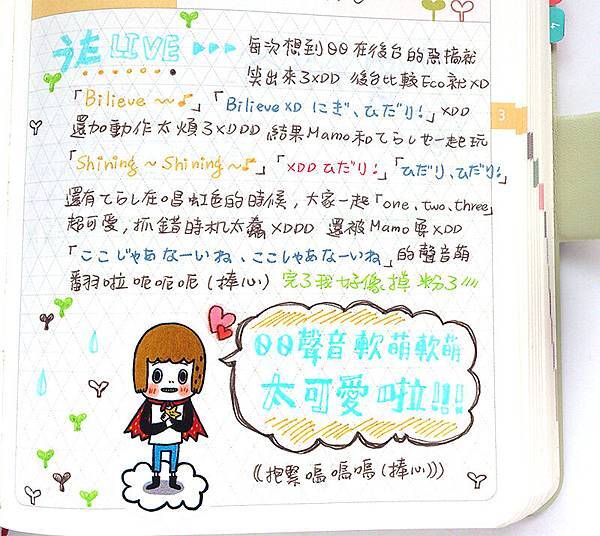 うたLIVE ▶▶▶ 每次想到00在後台的惡搞就
笑出來了XDD 後台比較Eco就XD
「Bilieve ～♪」「Bilieve XD にぎ、ひだり!」XDD
還加動作太煩了XDDD 結果Mamo和てらしせ一起玩
「Shining～Shining～♪」「XDD ひだり!」「ひだり、ひだり!」
還有てらし在唱虹色的時候，大家一起「one、two、three」
超可愛，抓錯時机太蠢XDDD 還被Mamo耍XDD
「ここじゃあなーいね、ここじゃあなーいね」的聲音萌
翻啦呃呃呃(捧心) 完了我好像掉粉了///
00聲音軟萌軟萌
太可愛啦!!!
((抱緊嗚嗚嗚(捧心)))
3
4